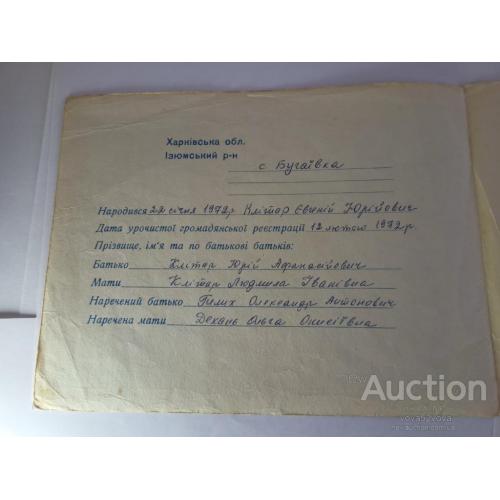 Харківська обл.
Ізюмський р-н
с. Бугаївка
Народився 22 січня 1972р Клітар Євгеній Юрійович
Дата урочистої громадянської реєстрації 12 лютого 1972 р.
Прізвище, ім'я та по батькові батьків:
Батько Клітар Юрій Афанасійович
Мати Клітар Людмила Іванівна
Наречений батько Олександр Антонович
Наречена мати Ольга
Auction
vovabyvova
newauction.com.ua